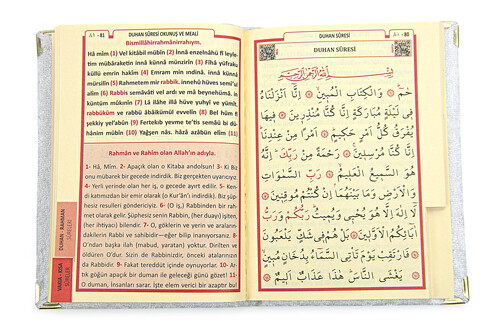 ٨١ - 81
DUHAN SÛRESİ OKUNUŞ VE MEALİ
Bismillâhirrahmânirrahıym.
Hâ mîm (1) Vel kitâbil mübîn (2) İnnâ enzelnâhü fî leyle-
tim mübâraketin innâ künnâ münzirîn (3) Fîhâ yüfraku
küllü emrin hakîm (4) Emram min ındinâ, innâ künnâ
mürsilîn (5) Rahmetem mir rabbik, innehû hüves semîul
alîm (6) Rabbis semâvâti vel ardı ve mâ beynehümâ, in
küntüm mûkınîn (7) Lâ ilâhe illâ hüve yuhyî ve yümît,
rabbüküm ve rabbü âbâikümül evvelîn (8) Bel hüm fî
şekkiy yel'abûn (9) Fertekıb yevme te'tis semâü bi dü-
hânim mübîn (10) Yağşen nâs, hâzâ azâbün elîm (11)
Rahmân ve Rahîm olan Allah'ın adıyla.
1- Hâ, Mîm. 2- Apaçık olan o Kitaba andolsun! 3- Ki Biz
onu mübarek bir gecede indirdik. Biz gerçekten uyarıcıyız.
4- Yerli yerinde olan her iş, o gecede ayırt edilir. 5- Ken-
di katımızdan bir emir olarak (o Kur'ân'ı indirdik). Biz şüp-
hesiz resulleri göndericiyiz. 6- (O iş,) Rabbinden bir rah-
met olarak gelir. Şüphesiz senin Rabbin, (her duayı) işiten,
(her ihtiyacı) bilendir. 7- O, göklerin ve yerin ve araların-
dakilerin Rabbi ve sahibidir—eğer bilip inanıyorsanız. 8-
O'ndan başka ilah (mabud, yaratan) yoktur. Dirilten ve
öldüren O'dur. Sizin de Rabbinizdir, önceki atalarınızın
da Rabbidir. 9- Fakat tereddüt içinde oynuyorlar. 10- Ar-
tık göğün apaçık bir duman ile geleceği günü gözet! 11-
O duman, insanları sarar. İşte elem verici bir azaptır bu!
DUHAN - RAHMAN
SÛRELERİ
VAKIA - KISA
SÛRELER
DUHAN SÛRESİ
٨٠ - 80
DUHAN SÛRESİ
بِسْمِ اللّٰهِ الرَّحْمٰنِ الرَّحِيمِ
حٰمٓ ﴿١﴾ وَالْكِتَابِ الْمُبِينِ ﴿٢﴾ اِنَّٓا اَنْزَلْنَاهُ
فِى لَيْلَةٍ مُبَارَكَةٍ اِنَّا كُنَّا مُنْذِرِينَ ﴿٣﴾ فِيهَا
يُفْرَقُ كُلُّ اَمْرٍ حَكِيمٍ ﴿٤﴾ اَمْرًا مِنْ عِنْدِنَا
اِنَّا كُنَّا مُرْسِلِينَ ﴿٥﴾ رَحْمَةً مِنْ رَبِّكَ اِنَّهُ
هُوَ السَّمِيعُ الْعَلِيمُ ﴿٦﴾ رَبِّ السَّمٰوَاتِ
وَالْاَرْضِ وَمَا بَيْنَهُمَا اِنْ كُنْتُمْ مُوقِنِينَ ﴿٧﴾
لَٓا اِلٰهَ اِلَّا هُوَ يُحْيِى وَيُمِيتُ رَبُّكُمْ وَرَبُّ
اٰبَٓائِكُمُ الْاَوَّلِينَ ﴿٨﴾ بَلْ هُمْ فِى شَكٍّ يَلْعَبُونَ ﴿٩﴾
فَارْتَقِبْ يَوْمَ تَأْتِى السَّمَٓاءُ بِدُخَانٍ مُبِينٍ ﴿١٠﴾
يَغْشَى النَّاسَ هٰذَا عَذَابٌ اَلِيمٌ ﴿١١﴾